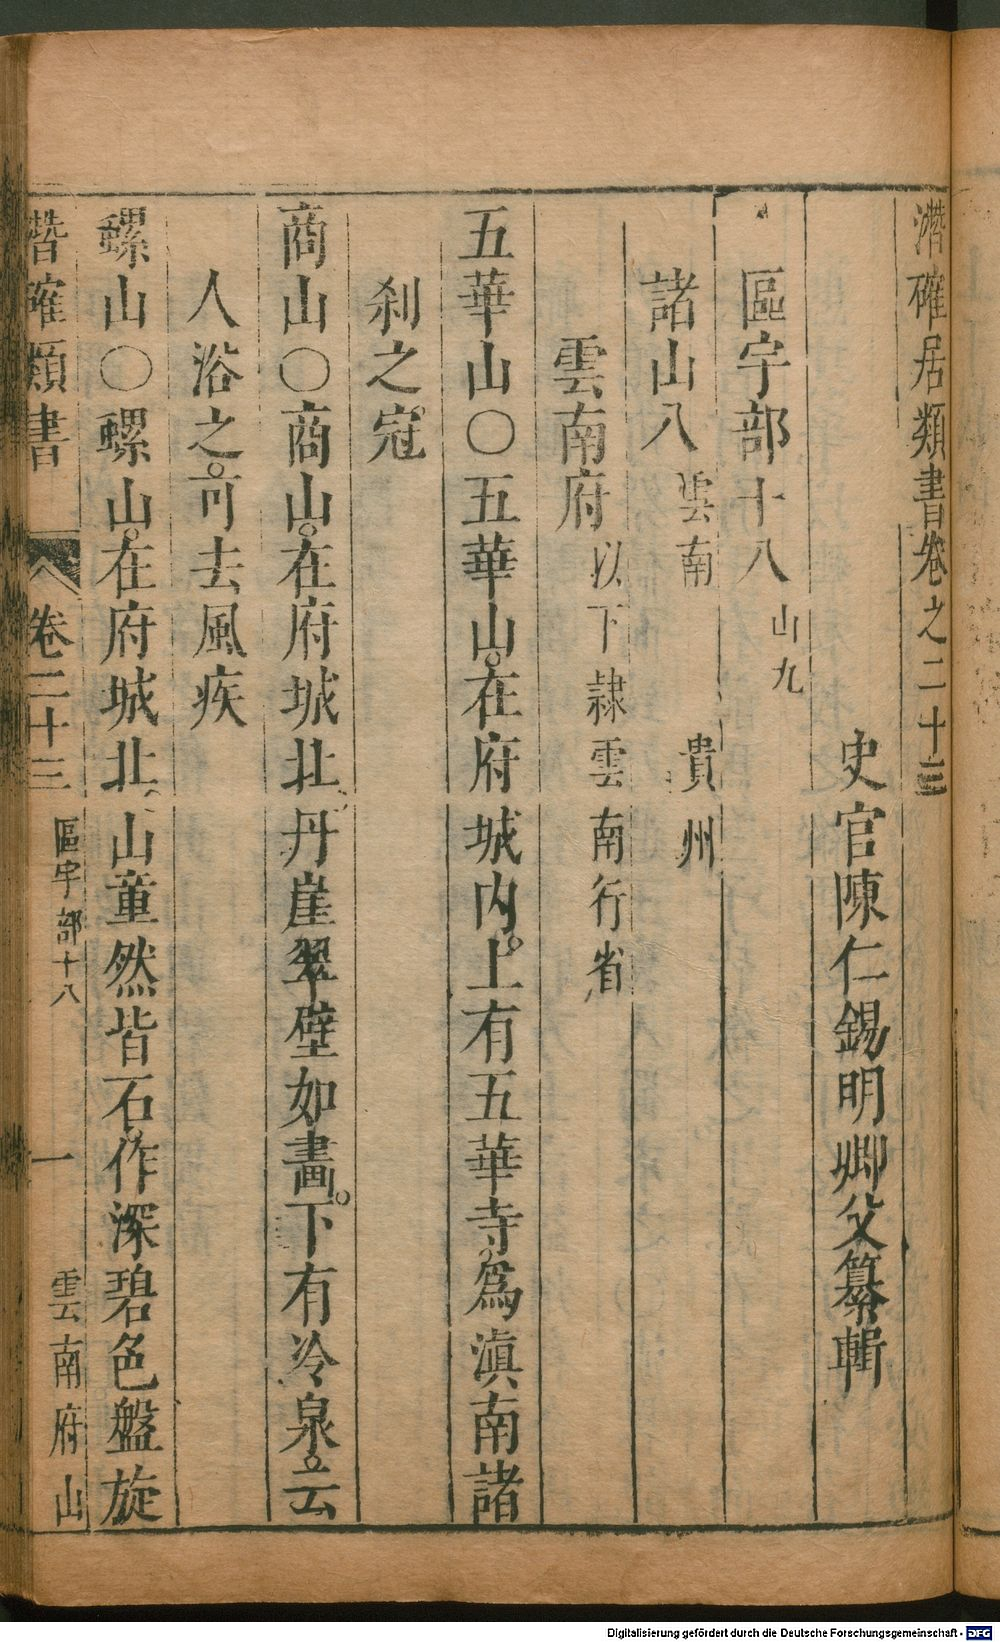 潛確居類書卷之二十三
史官陳仁錫明卿父纂輯
區宇部十八 山九
諸山八 雲南 貴州
雲南府 以下隸雲南行省
五華山○五華山。在府城內。上有五華寺。爲滇南諸
刹之冠
商山○商山。在府城北、丹崖翠壁如畫。下有冷泉。云
人浴之。可去風疾
螺山○螺山。在府城北、山童然皆石、作深碧色盤旋
潛確類書 卷二十三 區宇部十八 一 雲南府 山
Digitalisierung gefördert durch die Deutsche Forschungsgemeinschaft - DFG